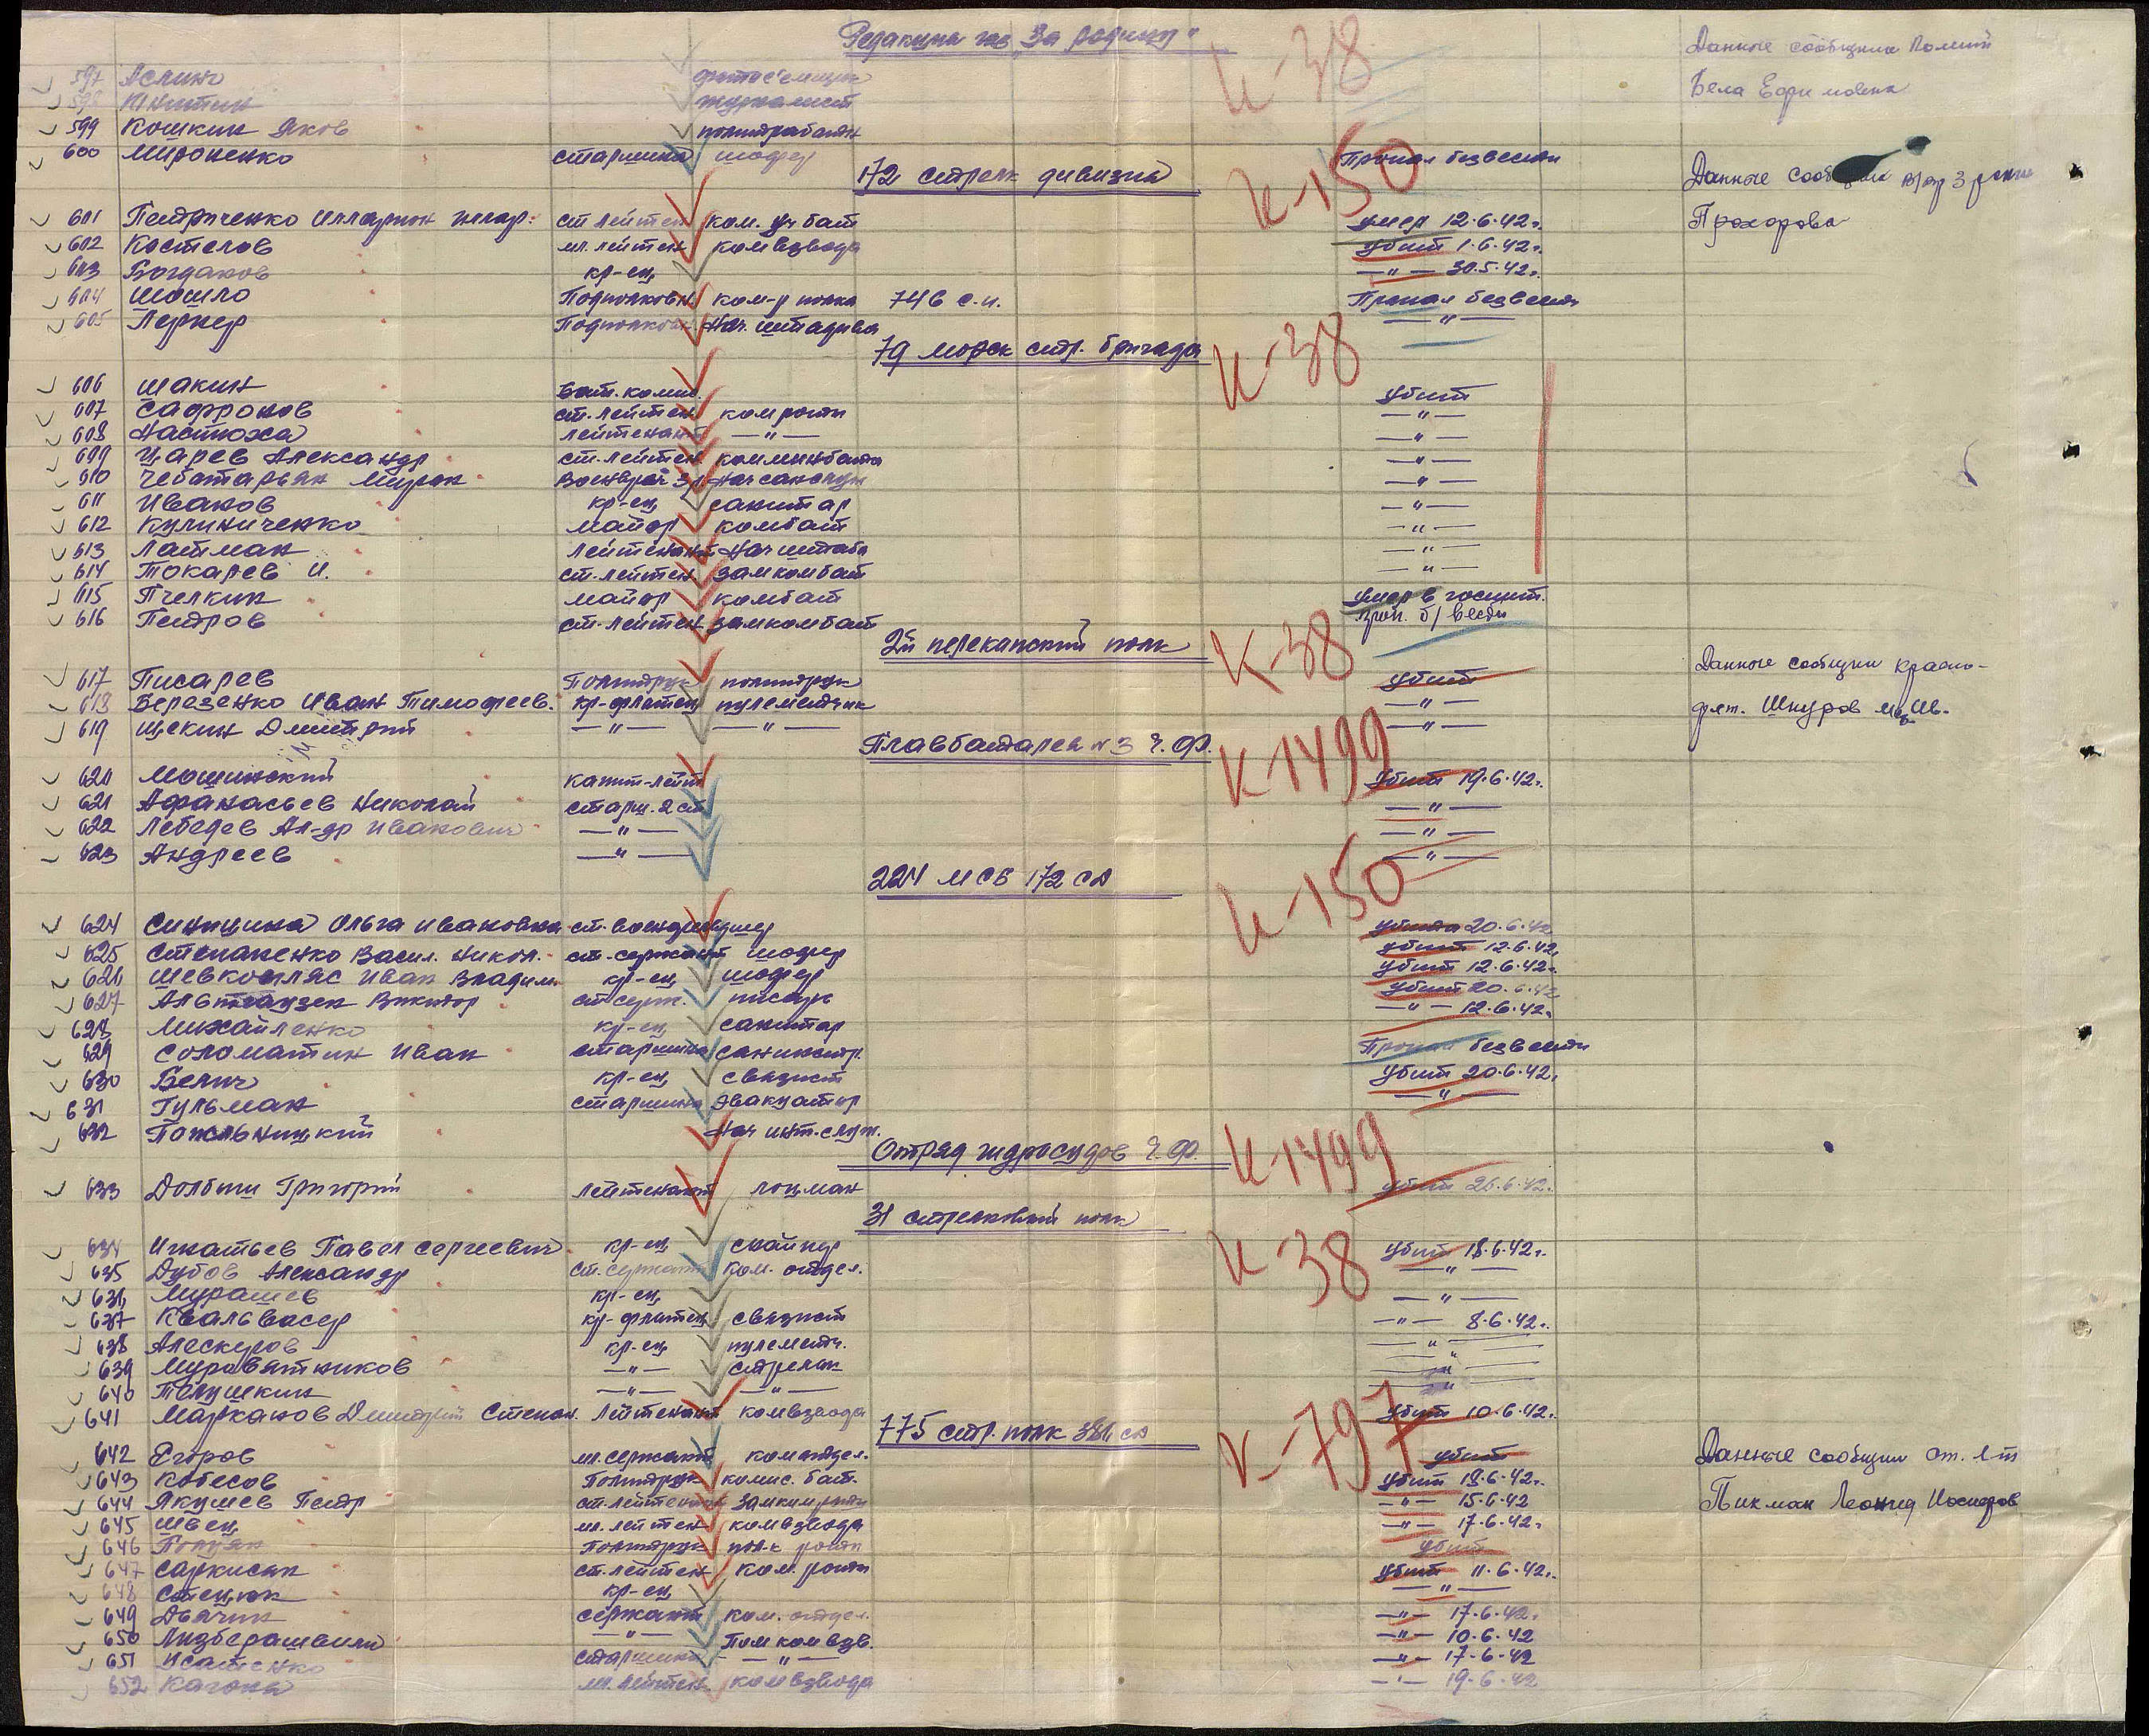 Редакция газ. "За родину"
К-38
Данные сообщила
Бела Ефимовна
597 Аслини
журналист
599 Кошкин Яков политработн
600 Мироненко старшина шофер Пропал безвести
172 стрелк дивизия
К-150
Данные сообщил
Прохорова
601 Петриченко Илларион Иллар. ст лейтен ком. уч бат умер 12.6.42г.
602 Костелов мл. лейтен комвзвода убит 1.6.42г.
603 Богданов кр-ец —"— 30.5.42г.
604 Шашло Подполковн ком-р полка 746 с.п. Пропал безвести
605 Лернер Подполков Нач. штадива —"—
79 морск стр. бригада
К-38
606 Шакин Бат. комис. убит
607 Сафронов ст. лейтен ком роты —"—
608 Настюха лейтенант —"— —"—
609 Царев Александр ст. лейтен комминбата —"—
610 Чебатарьян Мирон Военврач 3 р. Нач санслуж —"—
611 Иванов кр-ец санитар —"—
612 Кулиниченко майор комбат —"—
613 Латман лейтенант Нач штаба —"—
614 Токарев И. ст. лейтен замкомбат —"—
615 Пчелкин майор комбат умер в госпит.
616 Петров ст. лейтен замкомбат проп. б/вести
2й перекопский полк
К-38
Данные сообщил красно-
флт. Шкуров
617 Писарев Политрук политрук убит
618 Березенко Иван Тимофеев. кр-флотец пулеметчик —"—
619 Щекин Дмитрий —"— —"— —"—
Плавбатарея №3 Ч.Ф.
К-1499
620 Мошинский капит-лейт убит 19.6.42г.
621 Афанасьев Николай старш. 2 ст —"—
622 Лебедев Ал-др Иванович —"— —"—
623 Андреев —"— —"—
224 МСБ 172 СД
К-150
624 Синицина Ольга Ивановна ст. военфельдшер убита 20.6.42
625 Степаненко Васил. Никол. ст. сержант шофер убит 12.6.42
626 Шевкопляс Иван Владим. кр-ец шофер убит 12.6.42г.
627 Альтгаузен Виктор ст серж. писарь убит 20.6.42
628 Михайленко кр-ец санитар —"— 12.6.42г.
629 Соломатин Иван старшина санинстр. Пропал безвести
630 Белич кр-ец связист убит 20.6.42г.
631 Гульман старшина эвакуатор —"—
632 Нач инт. служ.
Отряд гидросудов Ч.Ф.
К-1499
633 Григорий лейтенант лоцман убит 26.6.42г.
31 стрелковый полк
К-38
634 Игнатьев Павел Сергеевич кр-ец снайпер убит 18.6.42г.
635 Дубов Александр ст. сержант ком. отдел. —"—
636 Мурашев кр-ец —"—
637 Квальвасер кр-флотец связист —"— 8.6.42г.
638 Алескеров кр-ец пулеметч. —"—
639 Муравятников —"— стрелок —"—
640 Телушкин —"— —"— —"—
641 Марканов Дмитрий Степан. Лейтенант комвзвода убит 10.6.42г.
775 стр. полк 386 сд
К-797
Данные сообщил ст. л-т
Пикман Леонид Иосифов
642 Егоров мл. сержант ком отдел. убит
643 Кобесов Политрук комис. бат. убит 18.6.42г.
644 Якушев Петр ст. лейтенант замком роты —"— 15.6.42
645 Швец мл. лейтен комвзвода —"— 17.6.42г.
646 Политрук пол-к роты убит
647 Саркисян ст. лейтен ком. роты убит 11.6.42г.
648 Стецюк кр-ец —"—
649 Дьячин сержант ком. отдел. —"— 17.6.42г.
650 Лизберашвили —"— Пом ком взв. —"— 10.6.42
651 Исатенко старшина —"— —"— 17.6.42
652 мл. лейтен комвзвода —"— 19.6.42